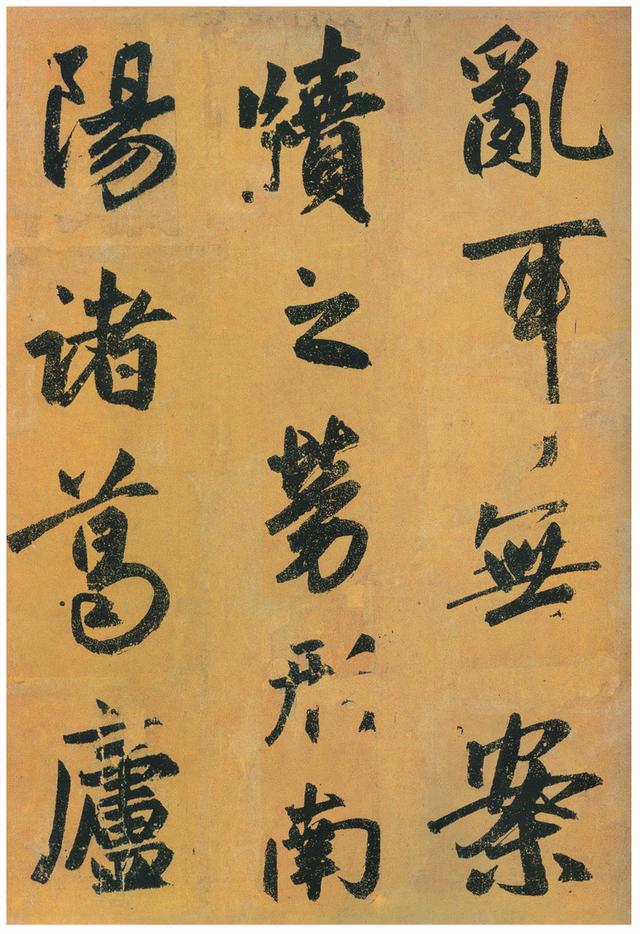 亂耳無案
牘之勞形南
陽諸葛廬